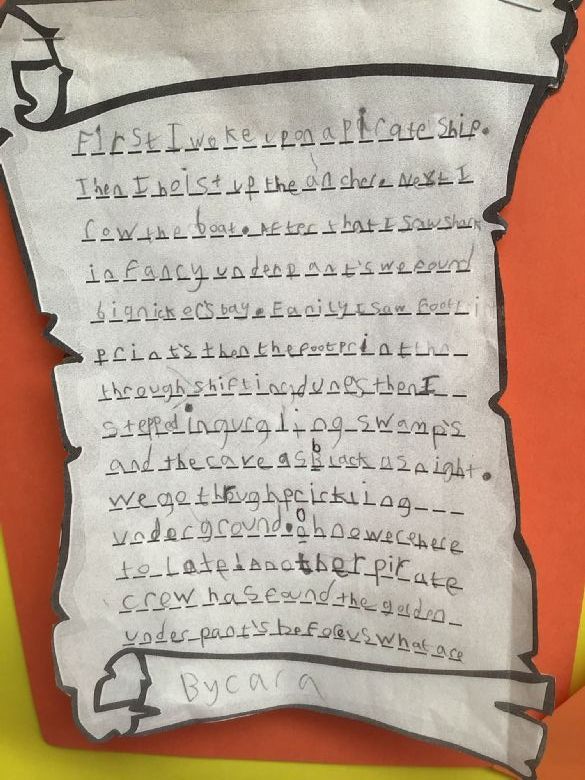 First I woke upon a pirate ship.
Then I hoist up the anchere Next I
row the boat. After that I saw shark
in fancy underpant's we found
bignicker's bay. Fanily I saw foot
print's then the footprint
through shifting dunes then I
stepped in gurgling swamp's
and the cave as Black as night.
we go through prickling
underground. oh no we rehere
to late! Another pirate
crew has found the golden
under pant's before us what are
By cara